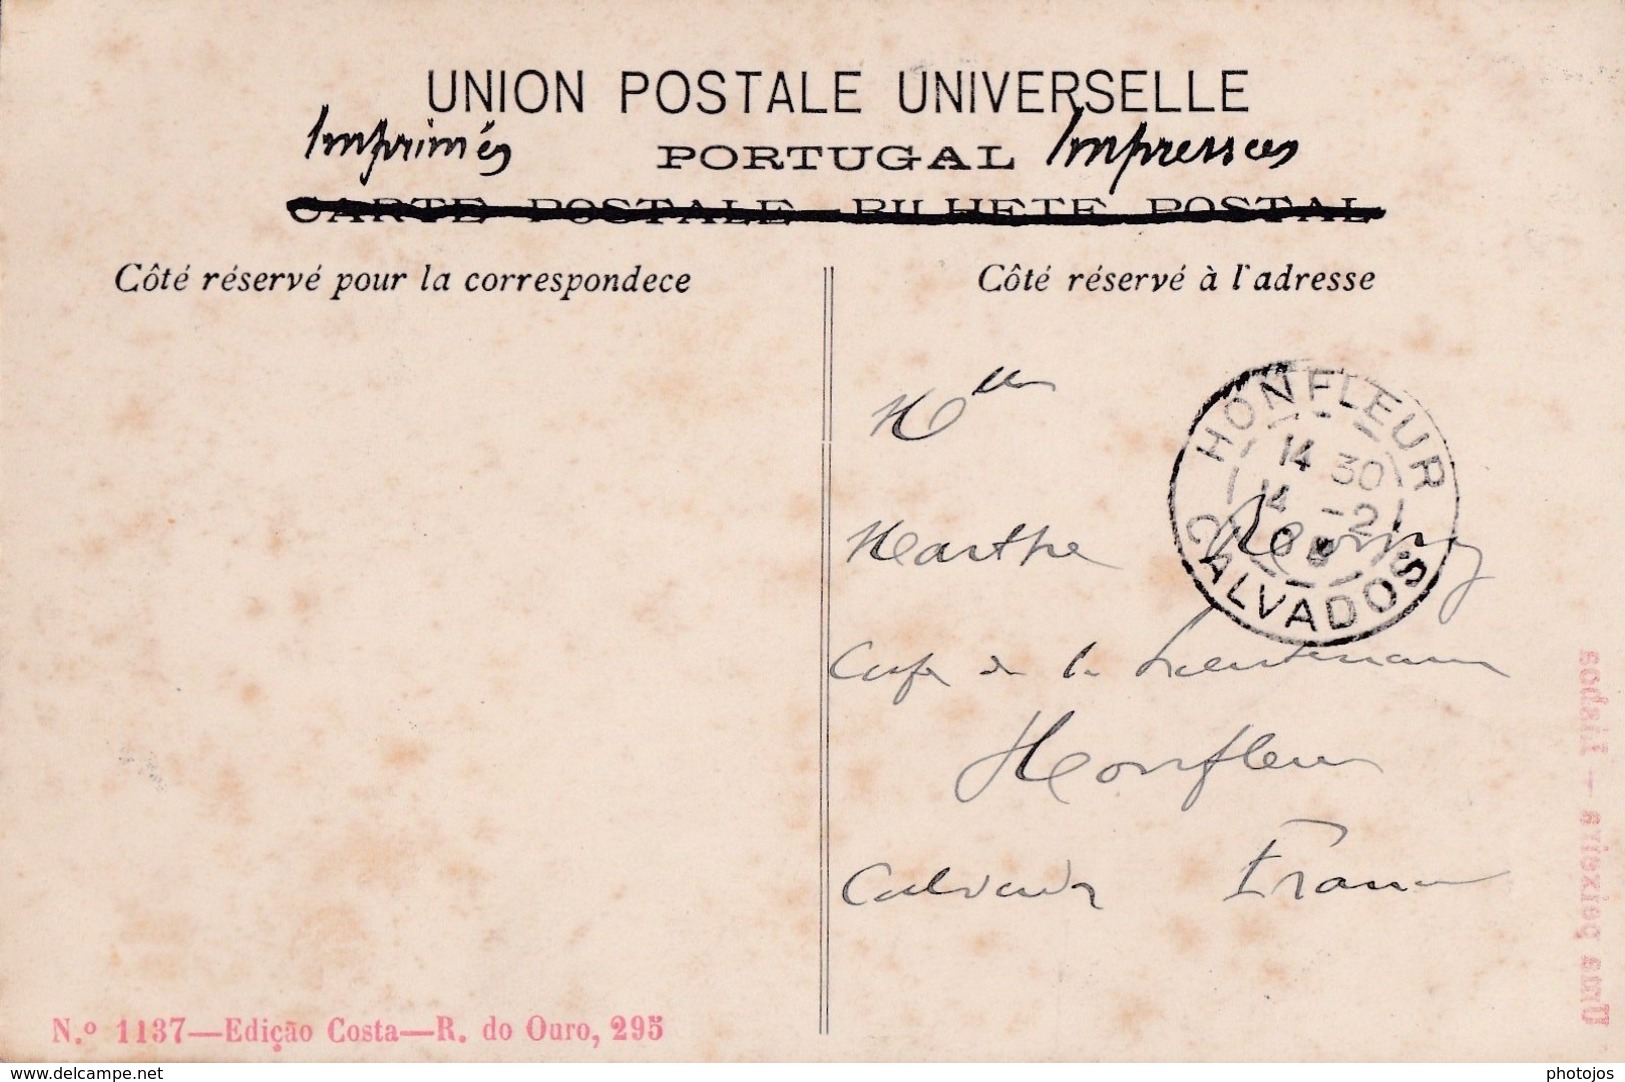 UNION POSTALE UNIVERSELLE
Imprimés PORTUGAL Impressoes
CARTE POSTALE - BILHETE POSTAL
Côté réservé pour la correspondece
Côté réservé à l'adresse
Mlle
HONFLEUR
14 30
14 -2
CALVADOS
Marthe
Café de la Lieutenance
Honfleur
Calvados France
Uma peixeira — Lisboa
N.º 1137—Edição Costa—R. do Ouro, 295
www.delcampe.net
photojos